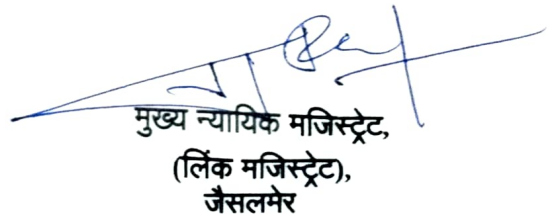 मुख्य न्यायिक मजिस्ट्रेट,
(लिंक मजिस्ट्रेट),
जैसलमेर